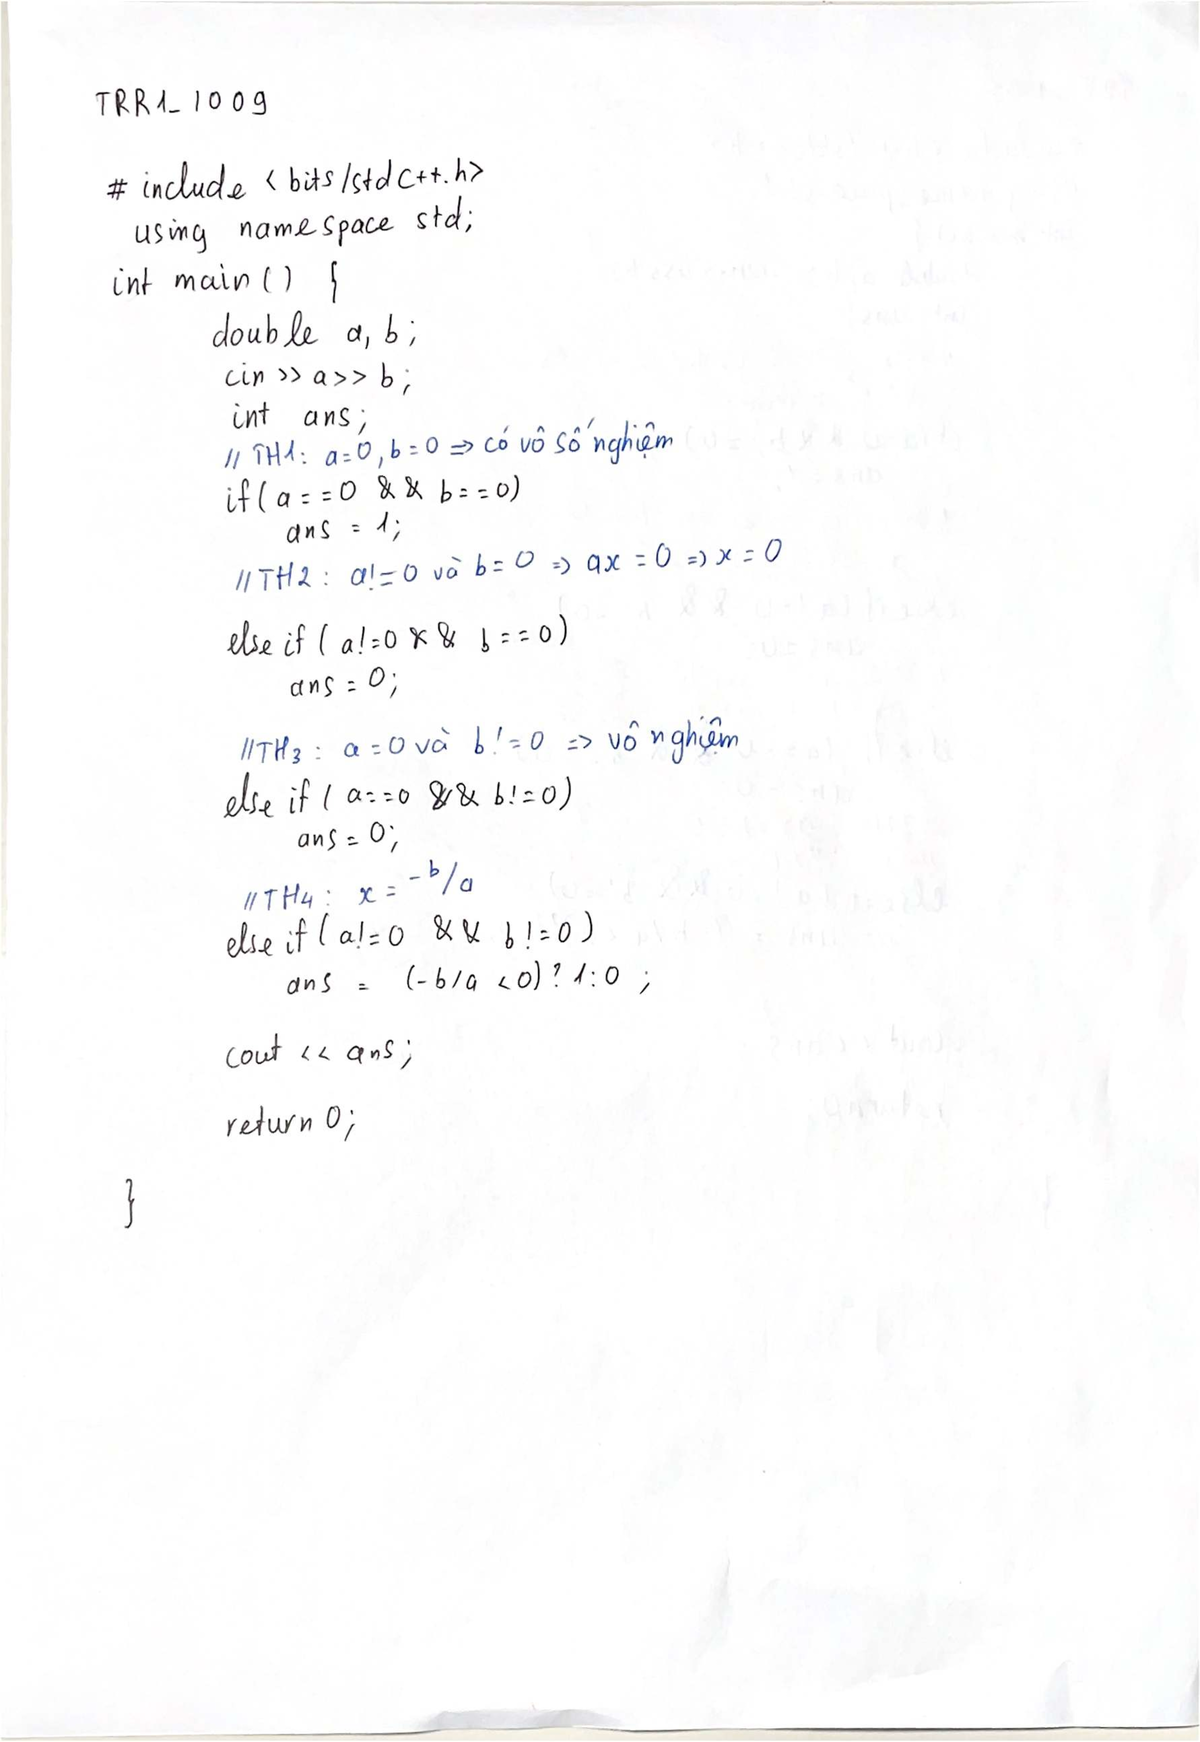 TRR1_1009
# include <bits/stdc++.h>
using namespace std;
int main() {
double a, b;
cin >> a >> b;
int ans;
// TH1: a=0, b=0 => có vô số nghiệm
if(a==0 && b==0)
ans = 1;
//TH2: a!=0 và b=0 => ax=0 => x=0
else if (a!=0 && b==0)
ans = 0;
//TH3: a=0 và b!=0 => vô nghiệm
else if (a==0 && b!=0)
ans = 0;
//TH4: x = -b/a
else if (a!=0 && b!=0)
ans = (-b/a <0)? 1:0;
cout << ans;
return 0;
}